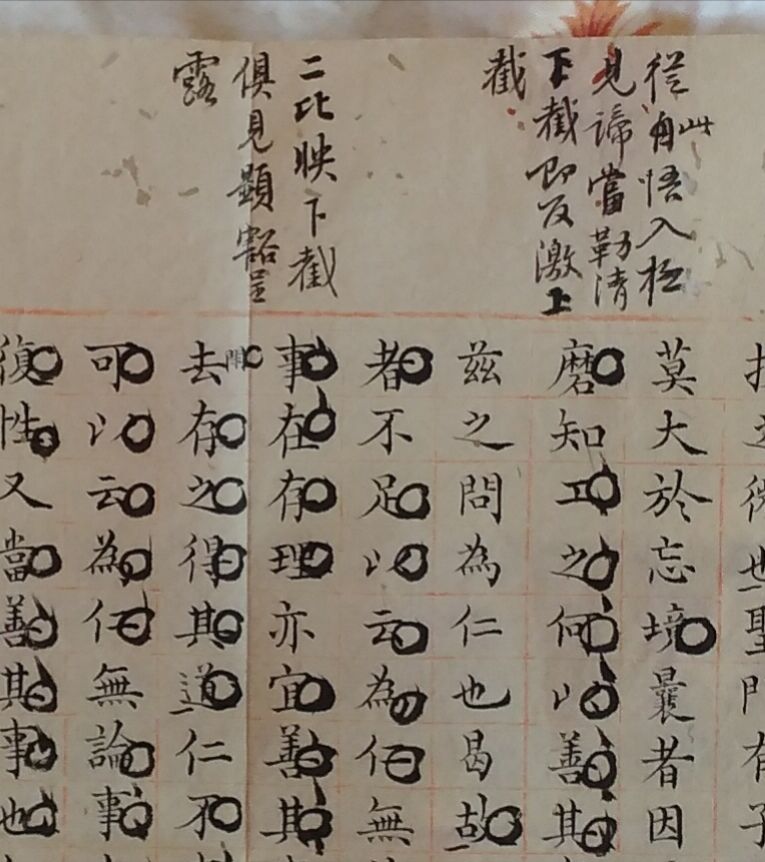 從此自悟入極
見諦當勒清
下截即反激上
截
二比映下截
俱見顯豁呈
露
莫大於忘境曩者因
磨知工之何以善其
茲之問為仁也曷故
者不足以云為仁無
事在有理亦宜善其
去存之得其道仁不
可以云為仁無論事
復性又當善其事也